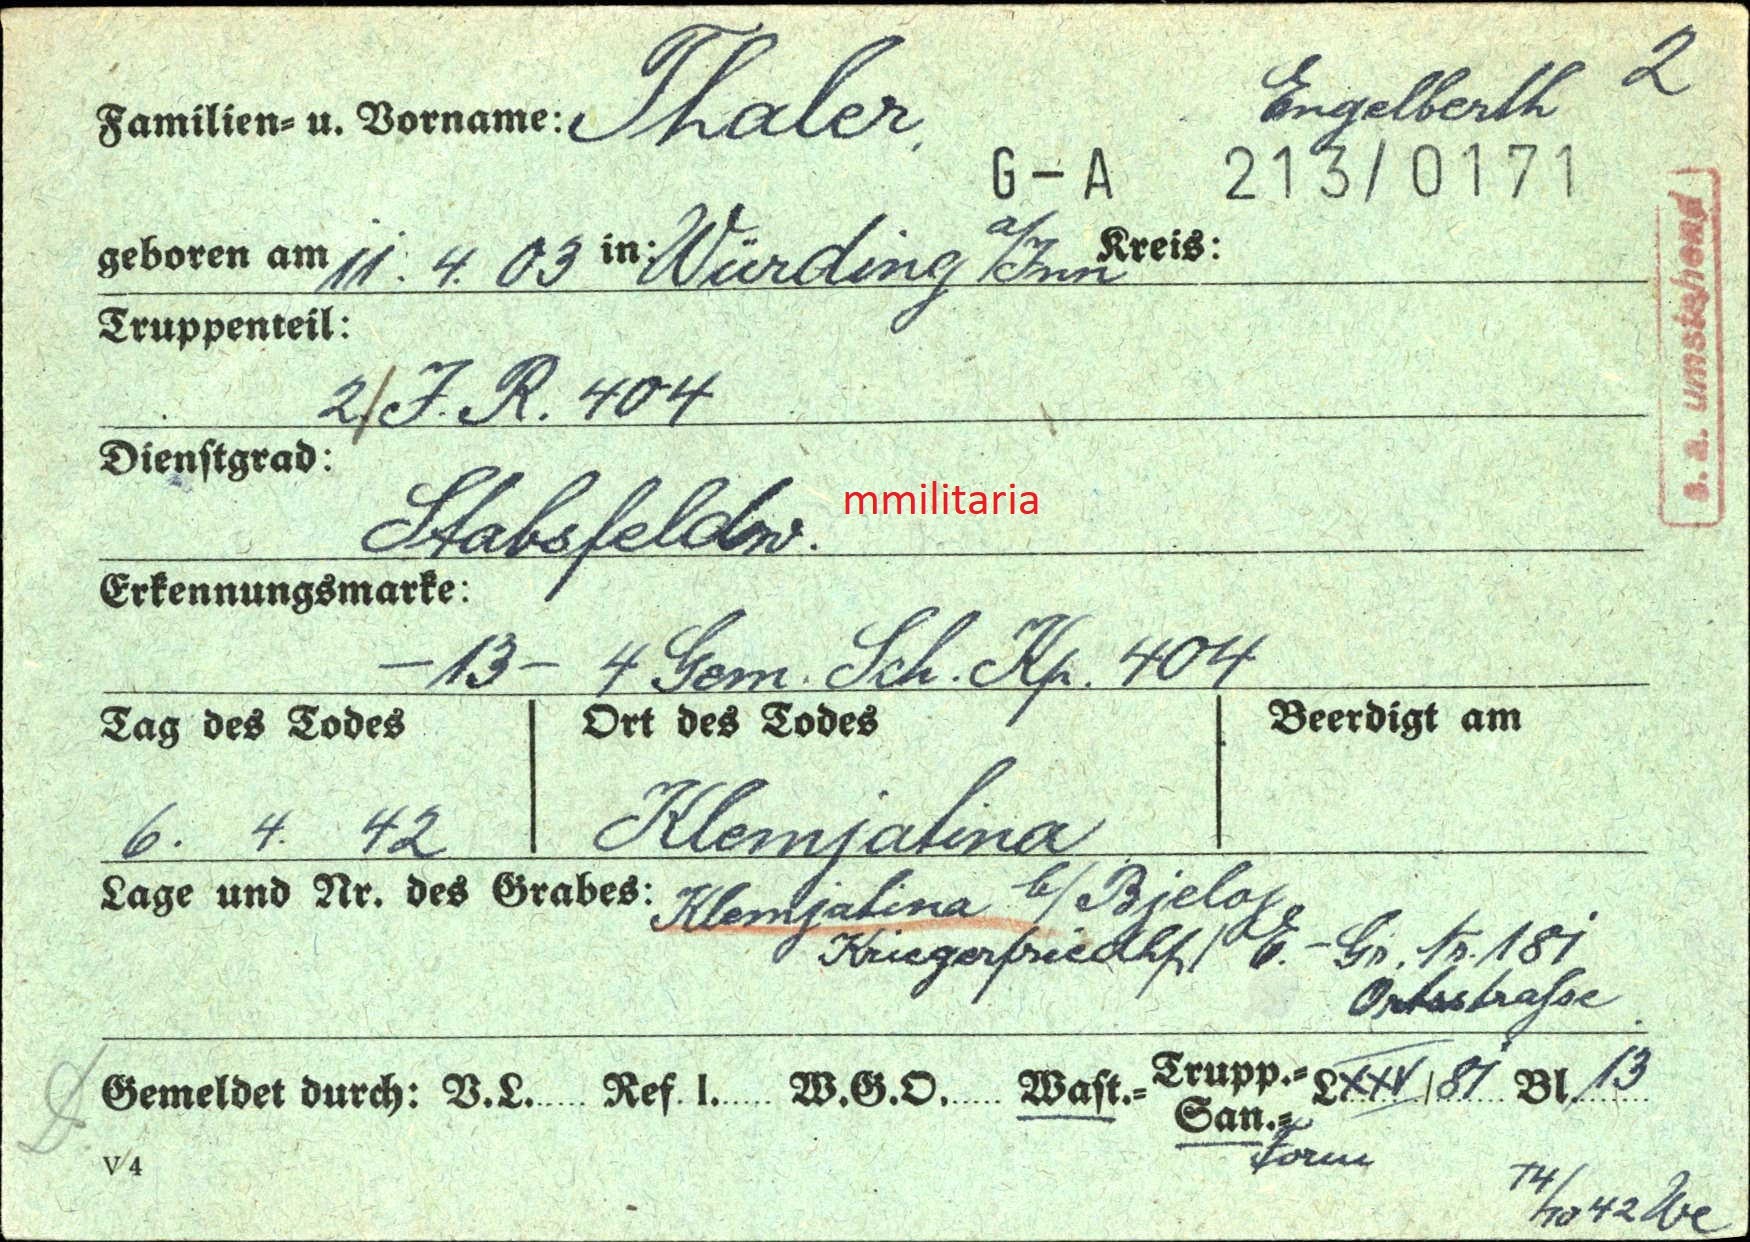 2
Familien- u. Vorname: Thaler, Engelberth
G-A 213/0171
geboren am 11. 4. 03 in: Würding a/Inn Kreis:
s. a. umstehend
Truppenteil:
2./J. R. 404
Dienstgrad:
Stabsfeldw.
mmilitaria
Erkennungsmarke:
-13- 4 Gem. Sch. Kp. 404
Tag des Todes Ort des Todes Beerdigt am
6. 4. 42 Klemjatina
Lage und Nr. des Grabes: Klemjatina b/ Bjeloj
Kriegerfriedhf/ E.-Gr. Nr. 181
Ortsstraße
Gemeldet durch: V.L..... Ref. l..... W.G.O..... Wast.= Trupp.= LXXV/81 Bl. 13
San.=
Form
V/4
14/10 42